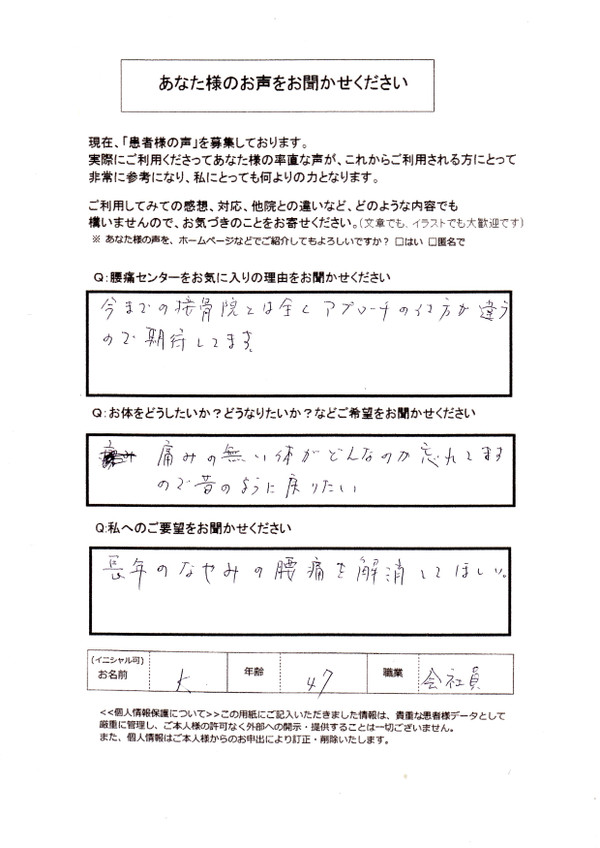 あなた様のお声をお聞かせください
現在、「患者様の声」を募集しております。
実際にご利用くださってあなた様の率直な声が、これからご利用される方にとって
非常に参考になり、私にとっても何よりの力となります。
ご利用してみての感想、対応、他院との違いなど、どのような内容でも
構いませんので、お気づきのことをお寄せください。(文章でも、イラストでも大歓迎です)
※ あなた様の声を、ホームページなどでご紹介してもよろしいですか? □はい □匿名で
Q:腰痛センターをお気に入りの理由をお聞かせください
今までの接骨院とは全くアプローチの仕方が違う
ので期待してます。
Q:お体をどうしたいか?どうなりたいか?などご希望をお聞かせください
痛みの無い体がどんなのか忘れてます
ので昔のように戻りたい
Q:私へのご要望をお聞かせください
長年のなやみの腰痛を解消してほしい。
(イニシャル可)
お名前 K. 年齢 47 職業 会社員
<<個人情報保護について>>この用紙にご記入いただきました情報は、貴重な患者様データとして
厳重に管理し、ご本人様の許可なく外部への開示・提供することは一切ございません。
また、個人情報はご本人様からのお申出により訂正・削除いたします。